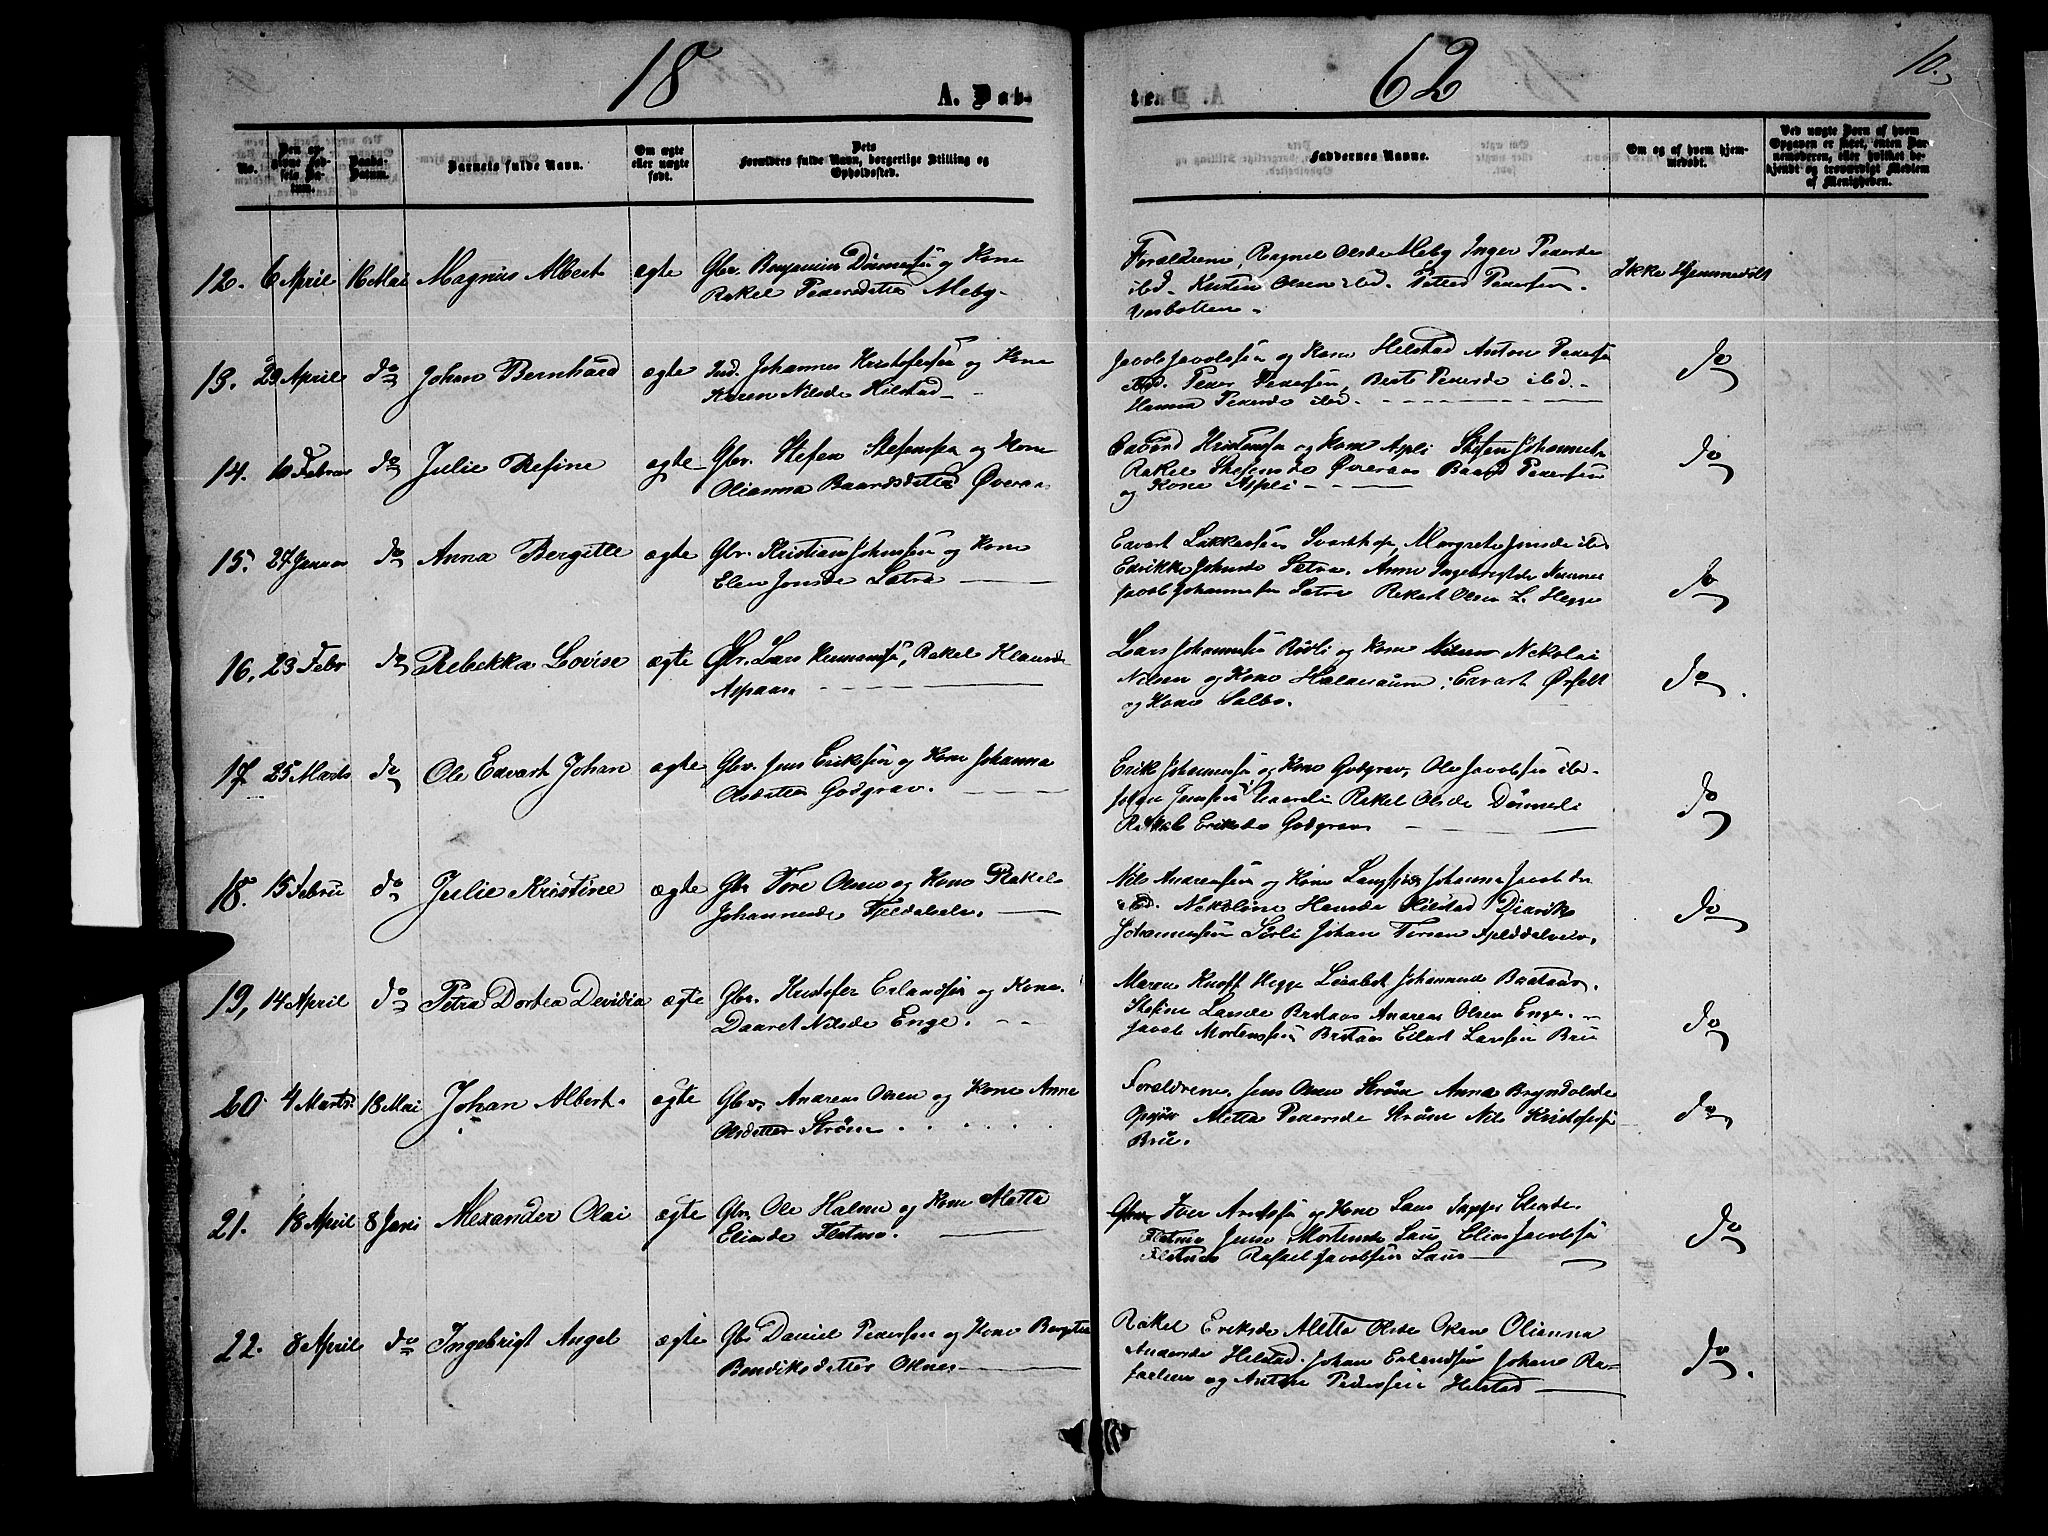 18 62 10.
A. Døb- te.
No.
Den opgivne Fødsels Datum.
Daabs-Datum.
Barnets fulde Navn.
Om ægte eller uægte født.
Dets Forældres fulde Navn, borgerlige Stilling og Opholdssted.
Faddernes Navne.
Om og af hvem hjemmedøbt.
Ved uægte Børn af hvem Opgaven er skeet, enten Barnemoderen, eller hvilket bekjendt og troværdigt Medlem af Menigheden.
12. 6 April 16 Mai Magnus Albert ægte Gbr. Benjamin Dønnesen og Kone
Rakel Pedersdatter Meby.
Forældrene, Ragnel Olsde Meby Inger Pedersde
ibd. Kristen Olsen ibd. Petter Pedersen
Ikke Hjemmedøbt
13. 29 April do Johan Bernhard ægte Ind. Johannes Kristofersen og Kone
Karen Nilsde Hilstad
Jacob Jacobsen og Kone Hilstad Anton Peders
ibd. Peder Pedersen, Berte Pedersde ibd.
Hanna Pedersde ibd.
do
14. 10 Februar do Julie Refine ægte Gbr. Stefen Stefensen og Kone
Olianna Baardsdatter Øveraa
Edvard Kristensen og Kone Aspli Stefen Johannesen
Rakel Stefensde Øveraas Baard Pedersen
og Kone Aspli
do
15. 27 Januar do Anna Bergitte ægte Gbr. Kristian Johnsen og Kone
Elen Jonsde Sætra
Edvart Lukkassen Svarthop, Margrete Jonsde ibd
Edrikke Johnsde Sætra. Anne Ingebrigtde
Jacob Johannesen Sætra Rekart Olsen L. Hegge
do
16, 23 Febr do Rebekka Lovise ægte Gbr. Lars Hermansen, Rakel Klausde
Aspaas
Lars Johannesen Rødli og Kone Nikolai
Nilsen og Kone Halnesaune, Edvart Ørfelt
og Kone Salbo.
do
17 25 Marts do Ole Edvart Johan ægte Gbr. Jens Eriksen og Kone Johanna
Olsdatter Godgrav.
Erik Johannesen og Kone Godgrav, Ole Jacobsen ibd.
Johan Jensen Rakel Olsde Dønneli
Rakel Eriksde Godgrav
do
18. 15 Febru do Julie Kristine ægte Gbr Tore Olsen og Kone Rakel
Johannesde Fjeldalselv.
Nils Andreasen og Kone Johanna Jacobsde
ibd. Nekoline Hansde Hilstad Didrik
Johannesen Sørli Johan Torsen Fjelddalselv.
do
19, 14 April do Petra Dortea Devidia ægte Gbr. Kristofer Erlandsen og Kone
Daaret Nilsde Enge.
Maren Knoff Hegge Lisabet Johannesde Brataas.
Stefine Larsde Brataas Andreas Olsen Enge.
Jacob Mortenssen Brataas Edvart Larssen Bru
do
20 4 Marts 18 Mai Johan Albert. ægte Gbr. Andreas Olsen og Kone Anne
Olsdatter Strøm
Forældrene. Jens Olsen Strøm Anna Bryndolsde
Aletta Pedersde Strøm Nils Kristofersen
Bru.
do
21. 18 April 8 Juni Alexander Olai ægte Gbr Ole Halvor og Kone Aletta
Eliasde Flatmo.
Iver Arntsen og Kone Saus Elisde
Flatmo Jens Mortensde Saus Elias Jacobsen
Flatmo Rafael Jacobsen Saus
do
22. 8 April do Ingebrigt Angel ægte Gbr Daniel Pedersen og Kone Bergitte
Bendiksdatter Oknes
Rakel Eriksde Aletta Olsde Oknes Olianna
Andersde Hilstad. Johan Erlandsen Johan Ra-
faelsen og Anton Pedersen Hilstad
do